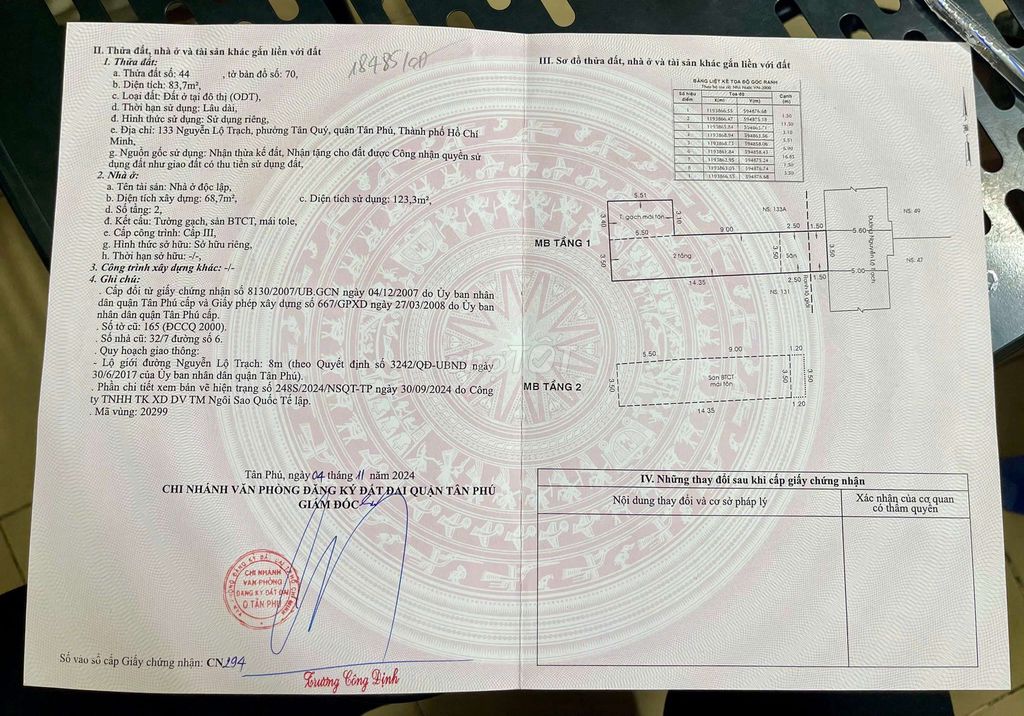 II. Thửa đất, nhà ở và tài sản khác gắn liền với đất
1. Thửa đất:
a. Thửa đất số: 44 , tờ bản đồ số: 70,
b. Diện tích: 83,7m²,
c. Loại đất: Đất ở tại đô thị (ODT),
d. Thời hạn sử dụng: Lâu dài,
đ. Hình thức sử dụng: Sử dụng riêng,
e. Địa chỉ: 133 Nguyễn Lộ Trạch, phường Tân Quý, quận Tân Phú, Thành phố Hồ Chí
Minh,
g. Nguồn gốc sử dụng: Nhận thừa kế đất, Nhận tặng cho đất được Công nhận quyền sử
dụng đất như giao đất có thu tiền sử dụng đất,
2. Nhà ở:
a. Tên tài sản: Nhà ở độc lập,
b. Diện tích xây dựng: 68,7m², c. Diện tích sử dụng: 123,3m²,
d. Số tầng: 2,
đ. Kết cấu: Tường gạch, sàn BTCT, mái tole,
e. Cấp công trình: Cấp III,
g. Hình thức sở hữu: Sở hữu riêng,
h. Thời hạn sở hữu: -/-,
3. Công trình xây dựng khác: -/-
4. Ghi chú:
. Cấp đổi từ giấy chứng nhận số 8130/2007/UB.GCN ngày 04/12/2007 do Ủy ban nhân
dân quận Tân Phú cấp và Giấy phép xây dựng số 667/GPXD ngày 27/03/2008 do Ủy ban
nhân dân quận Tân Phú cấp.
. Số tờ cũ: 165 (ĐCCQ 2000).
. Số nhà cũ: 32/7 đường số 6.
. Quy hoạch giao thông:
- Lộ giới đường Nguyễn Lộ Trạch: 8m (theo Quyết định số 3242/QĐ-UBND ngày
30/6/2017 của Ủy ban nhân dân quận Tân Phú).
. Phần chi tiết xem bản vẽ hiện trạng số 248S/2024/NSQT-TP ngày 30/09/2024 do Công
ty TNHH TK XD DV TM Ngôi Sao Quốc Tế lập.
. Mã vùng: 20299
Tân Phú, ngày 04 tháng 11 năm 2024
CHI NHÁNH VĂN PHÒNG ĐĂNG KÝ ĐẤT ĐAI QUẬN TÂN PHÚ
GIÁM ĐỐC
CHI NHÁNH
VĂN PHÒNG
ĐĂNG KÝ ĐẤT ĐAI
Q TÂN PHÚ
Trương Công Định
Số vào sổ cấp Giấy chứng nhận: CN294
III. Sơ đồ thửa đất, nhà ở và tài sản khác gắn liền với đất
BẢNG LIỆT KÊ TỌA ĐỘ GÓC RANH
Số hiệu điểm
Tọa độ
Cạnh (m)
X(m) Y(m)
MB TẦNG 1
5.51
T. gạch mái tôn
3.40
3.10
5.50
9.00
2.50
1.50
3.50
2 tầng
3.50
Sân
14.35
2.50
1.50
NS: 133A
NS: 131
Ranh lộ giới
5.60
5.00
Đường Nguyễn Lộ Trạch
NS: 49
NS: 47
MB TẦNG 2
5.50
9.00
1.20
3.50
Sàn BTCT
mái tôn
3.50
3.50
14.35
1.20
IV. Những thay đổi sau khi cấp giấy chứng nhận
Nội dung thay đổi và cơ sở pháp lý
Xác nhận của cơ quan
có thẩm quyền